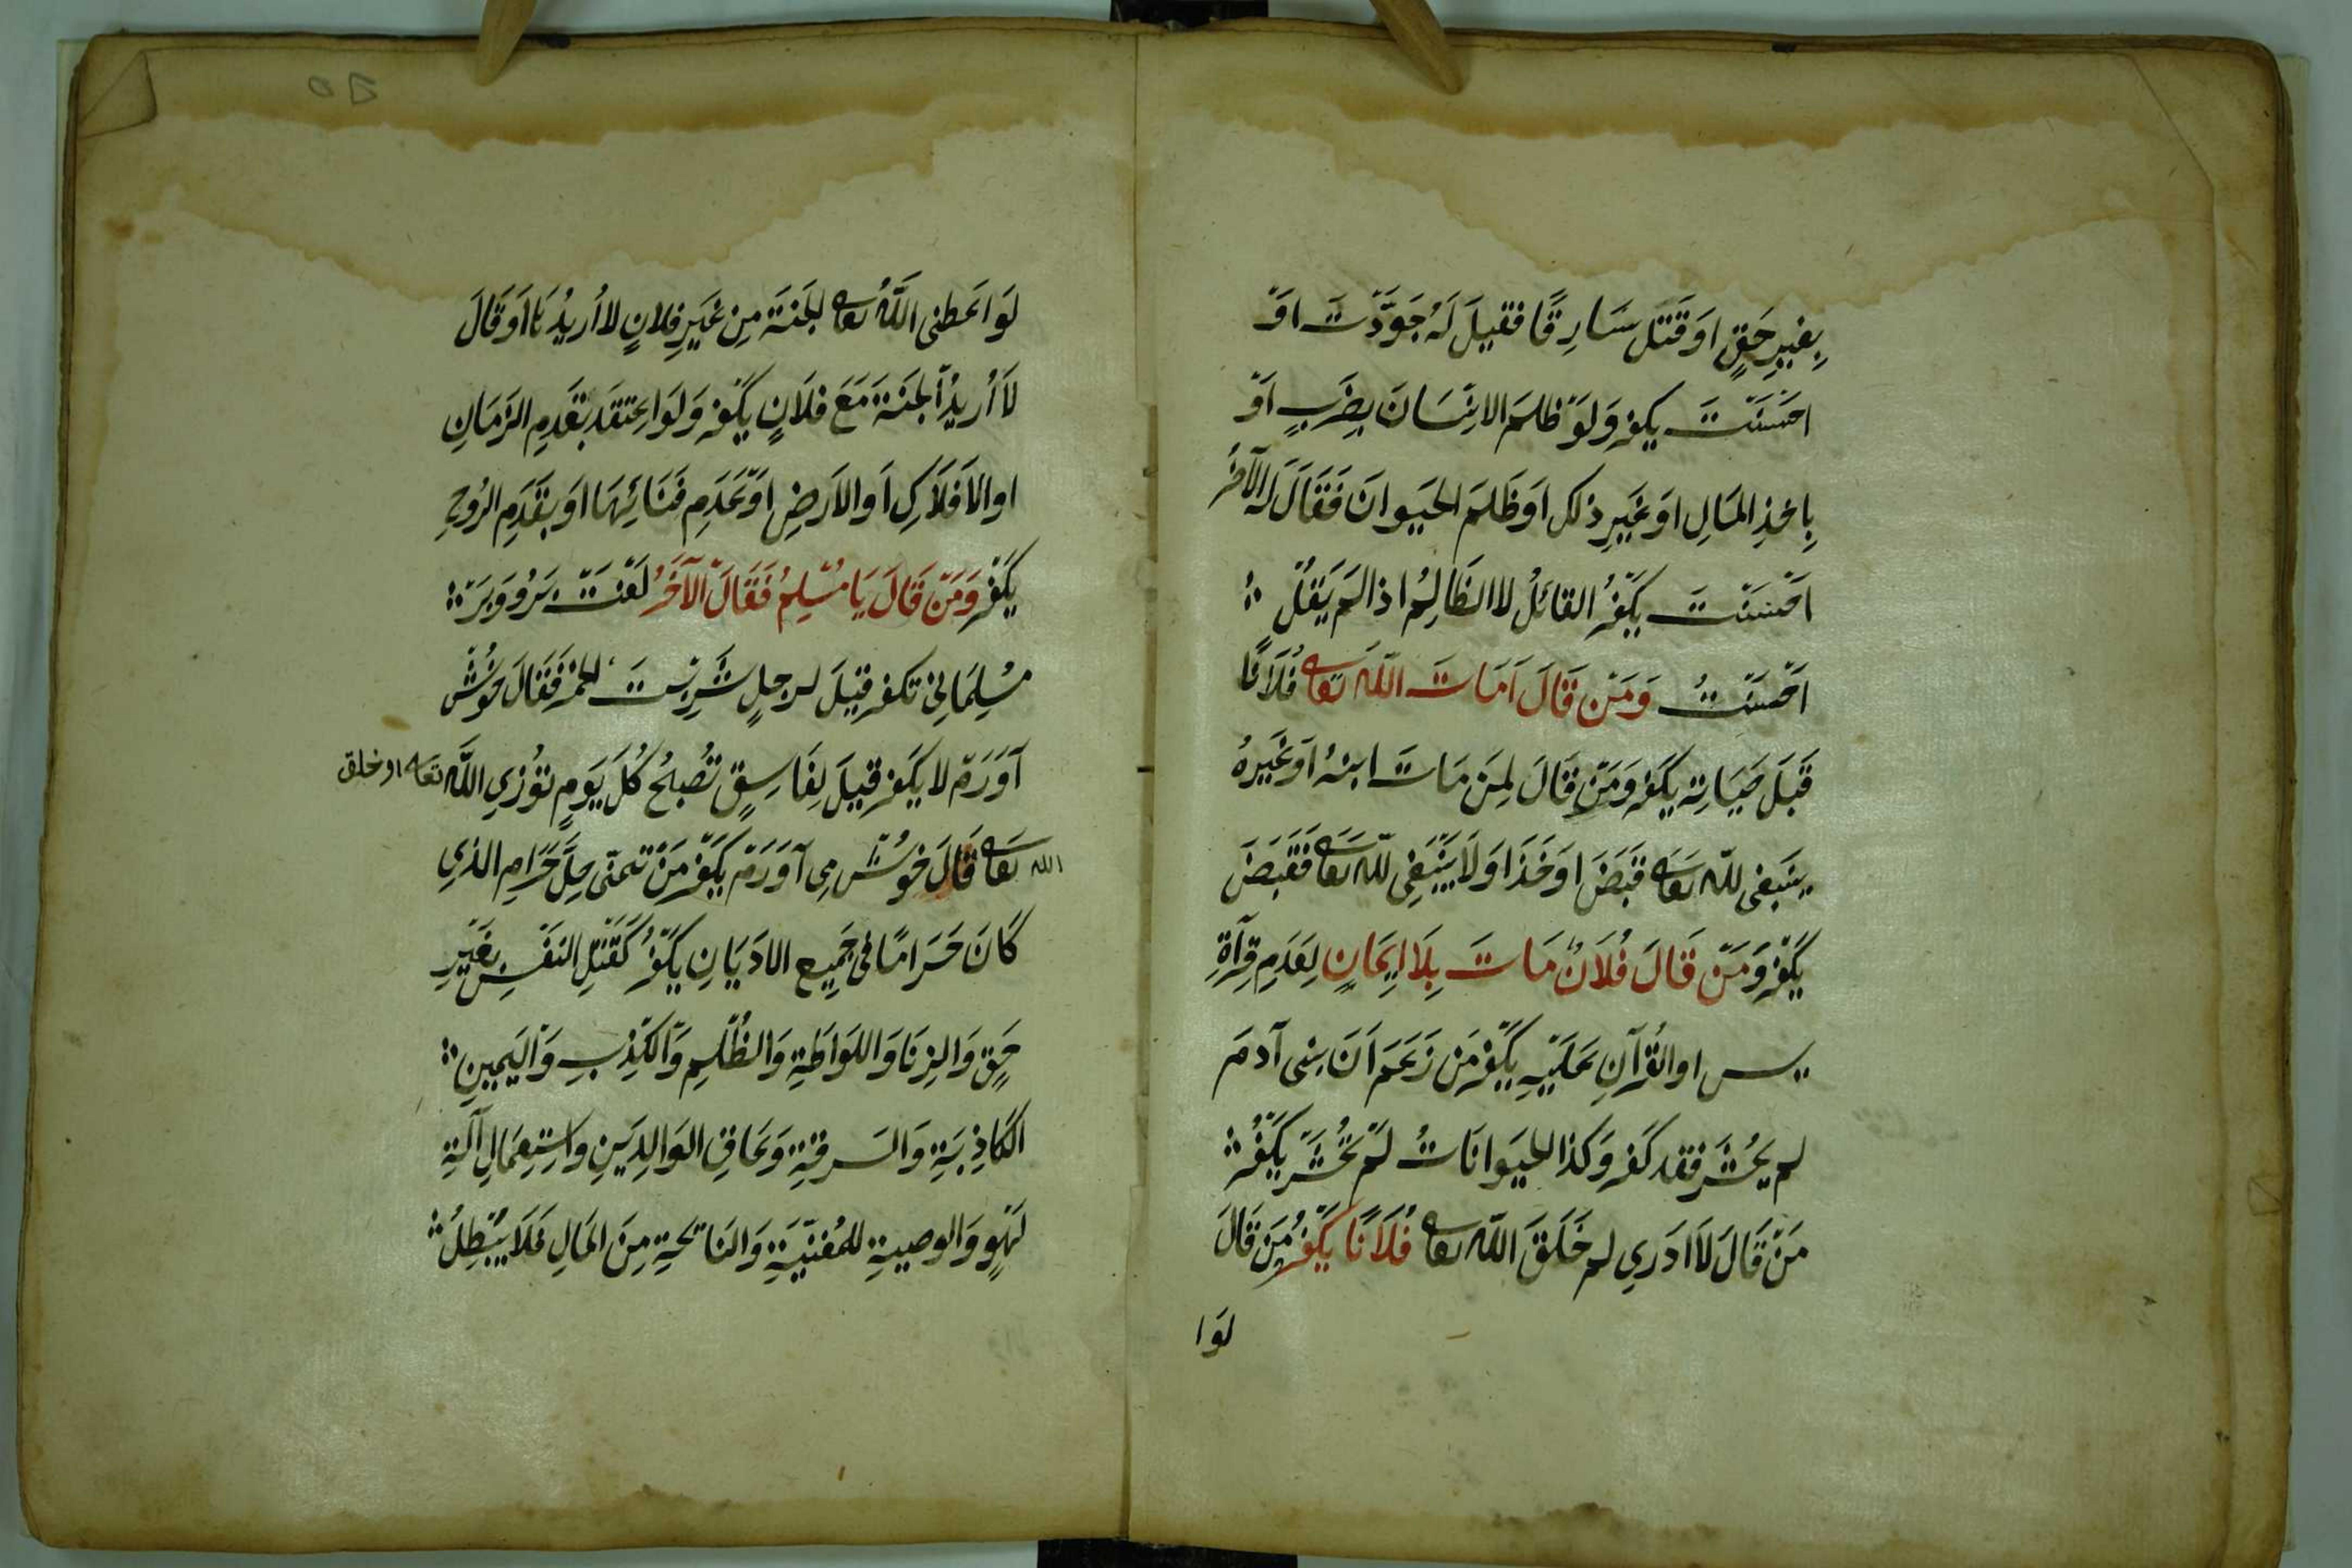 بِغَيرِ حَقٍّ اَوْ قَتَلَ سَارِقًا فَقِيلَ لَهُ جَوَّدْتَ اَوْ
اَحْسَنْتَ يكفر وَلَوْ ظَلَمَ الانْسَانَ بِضَرْبٍ اَوْ
بِاخْذِ المَالِ اَوْ غَيرِ ذلك اَوْ ظَلَمَ الحَيوانَ فَقَالَ له الآخَرُ
اَحْسَنْتَ يَكْفُرُ القائلُ لا الظَالِمُ اذا لَمْ يَقُلْ
اَحْسَنْتُ وَمَنْ قَالَ اَمَاتَ اللّٰهُ تعا فُلَانًا
قَبْلَ حَيَاتِهِ يَكفر وَمَنْ قَالَ لِمَنْ مَاتَ ابنهُ اَوْ غَيْرهُ
يَنْبَغِي للّٰه تعا قَبَضَ اَوْ خَذَا وَلَا يَنْبَغِي للّٰه تعا فَقَبَضَ
يَكْفُر وَمَنْ قَالَ فُلَانٌ مَاتَ بِلَا اِيمَانٍ لِعَدَمِ قِرآةِ
يس اوالقُرْآنِ عَلَيْهِ يَكْفُر مَنْ زَعَمَ اَنَّ بنى آدمَ
لم يُحْشَرْ فقد كفر وَكذا الحَيَوانَاتُ لَمْ تُحْشَرْ يَكْفُرُ
مَنْ قَالَ لَا اَدْرِي لم خَلَقَ اللّٰه تعا فُلَانًا يَكْفُرُ مَنْ قَالَ
لَوْ ا
لَوْ اعْطنى اللّٰهُ تعا الجَنَّةَ مِنْ غَيرِ فلانٍ لا اُريدُهَا اَوْ قَالَ
لَا اُرِيدُ الجَنَّةَ مَعَ فلَانٍ يَكفر وَلَوْ اعْتقَد بقَدَمِ الزَمَانِ
اوالاَفْلَاكِ اَوالاَرْضِ اَوْ بعَدَمِ فَنَائِهَا اَوْ بقَدَمِ الرُوحِ
يَكْفُر وَمَنْ قَالَ يَا مُسْلِمُ فَقَالَ الآخَرُ لَعْنَتْ بَرُو وَبَرْ
مُسِلمَانِي تكفر قيلَ لرجلٍ شَرِبْتَ الخَمْرَ فَقَالَ خُوشْ
آوَرَدْم لا يَكفر قيلَ لِفَاسِقٍ تُصْبحُ كُلَّ يَومٍ تؤذي اللّٰهَ تعا او خلق
الله تعا قَالَ خوُشْ مى آوَرَدْم يَكْفُر مَنْ تَمَنَّى حِلَّ حَرَامِ الذي
كَانَ حَرَامًا فى جَمِيعِ الادَيَانِ يَكْفُرُ كَقَتْلِ النَفْسِ بغَيْرِ
حَقٍّ وَالزِنَا وَاللوَاطَةِ وَالظُلْمِ وَالكَذِبِ وَاليَمِينِ
الكَاذِبَةِ وَالسَرقَةِ وَعَاقِ الوَالِدَينِ وَاسْتِعْمَالِ آلَةِ
لَهْوٍ وَالوصيةِ للمُغنّيَةِ وَالنَائِحَةِ مِنَ المَالِ فَلَا يَبْطِلُ